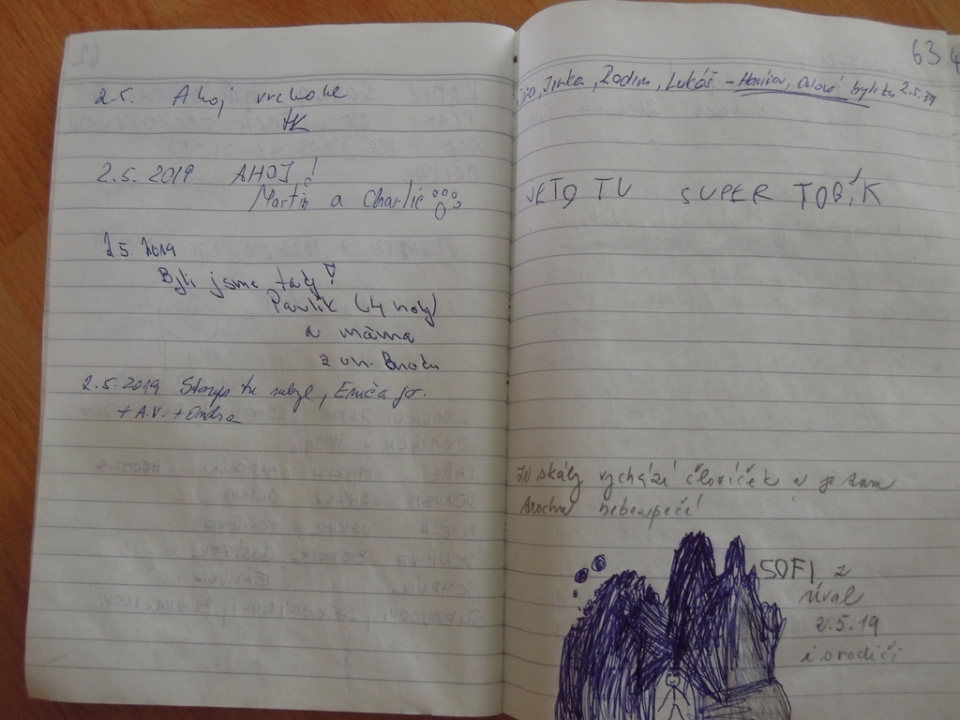 2.5. Ahoj vrchole
2.5.2019 AHOJ!
Martin a Charlie
2.5.2019
Byli jsme tady!
Pavlík (4 roky)
a máma
z Uh. Brodu
2.5.2019 tu nebyl, jo.
+ A.V. + Ondra
63
Jirka, Radim, Lukáš – Havířov, Orlová byli tu 2.5.19
JE TO TU SUPER TOBÍK
Ze skály vychází človíček a je tam
trochu nebezpečí
SOFI z
Úval
2.5.19
i s rodiči